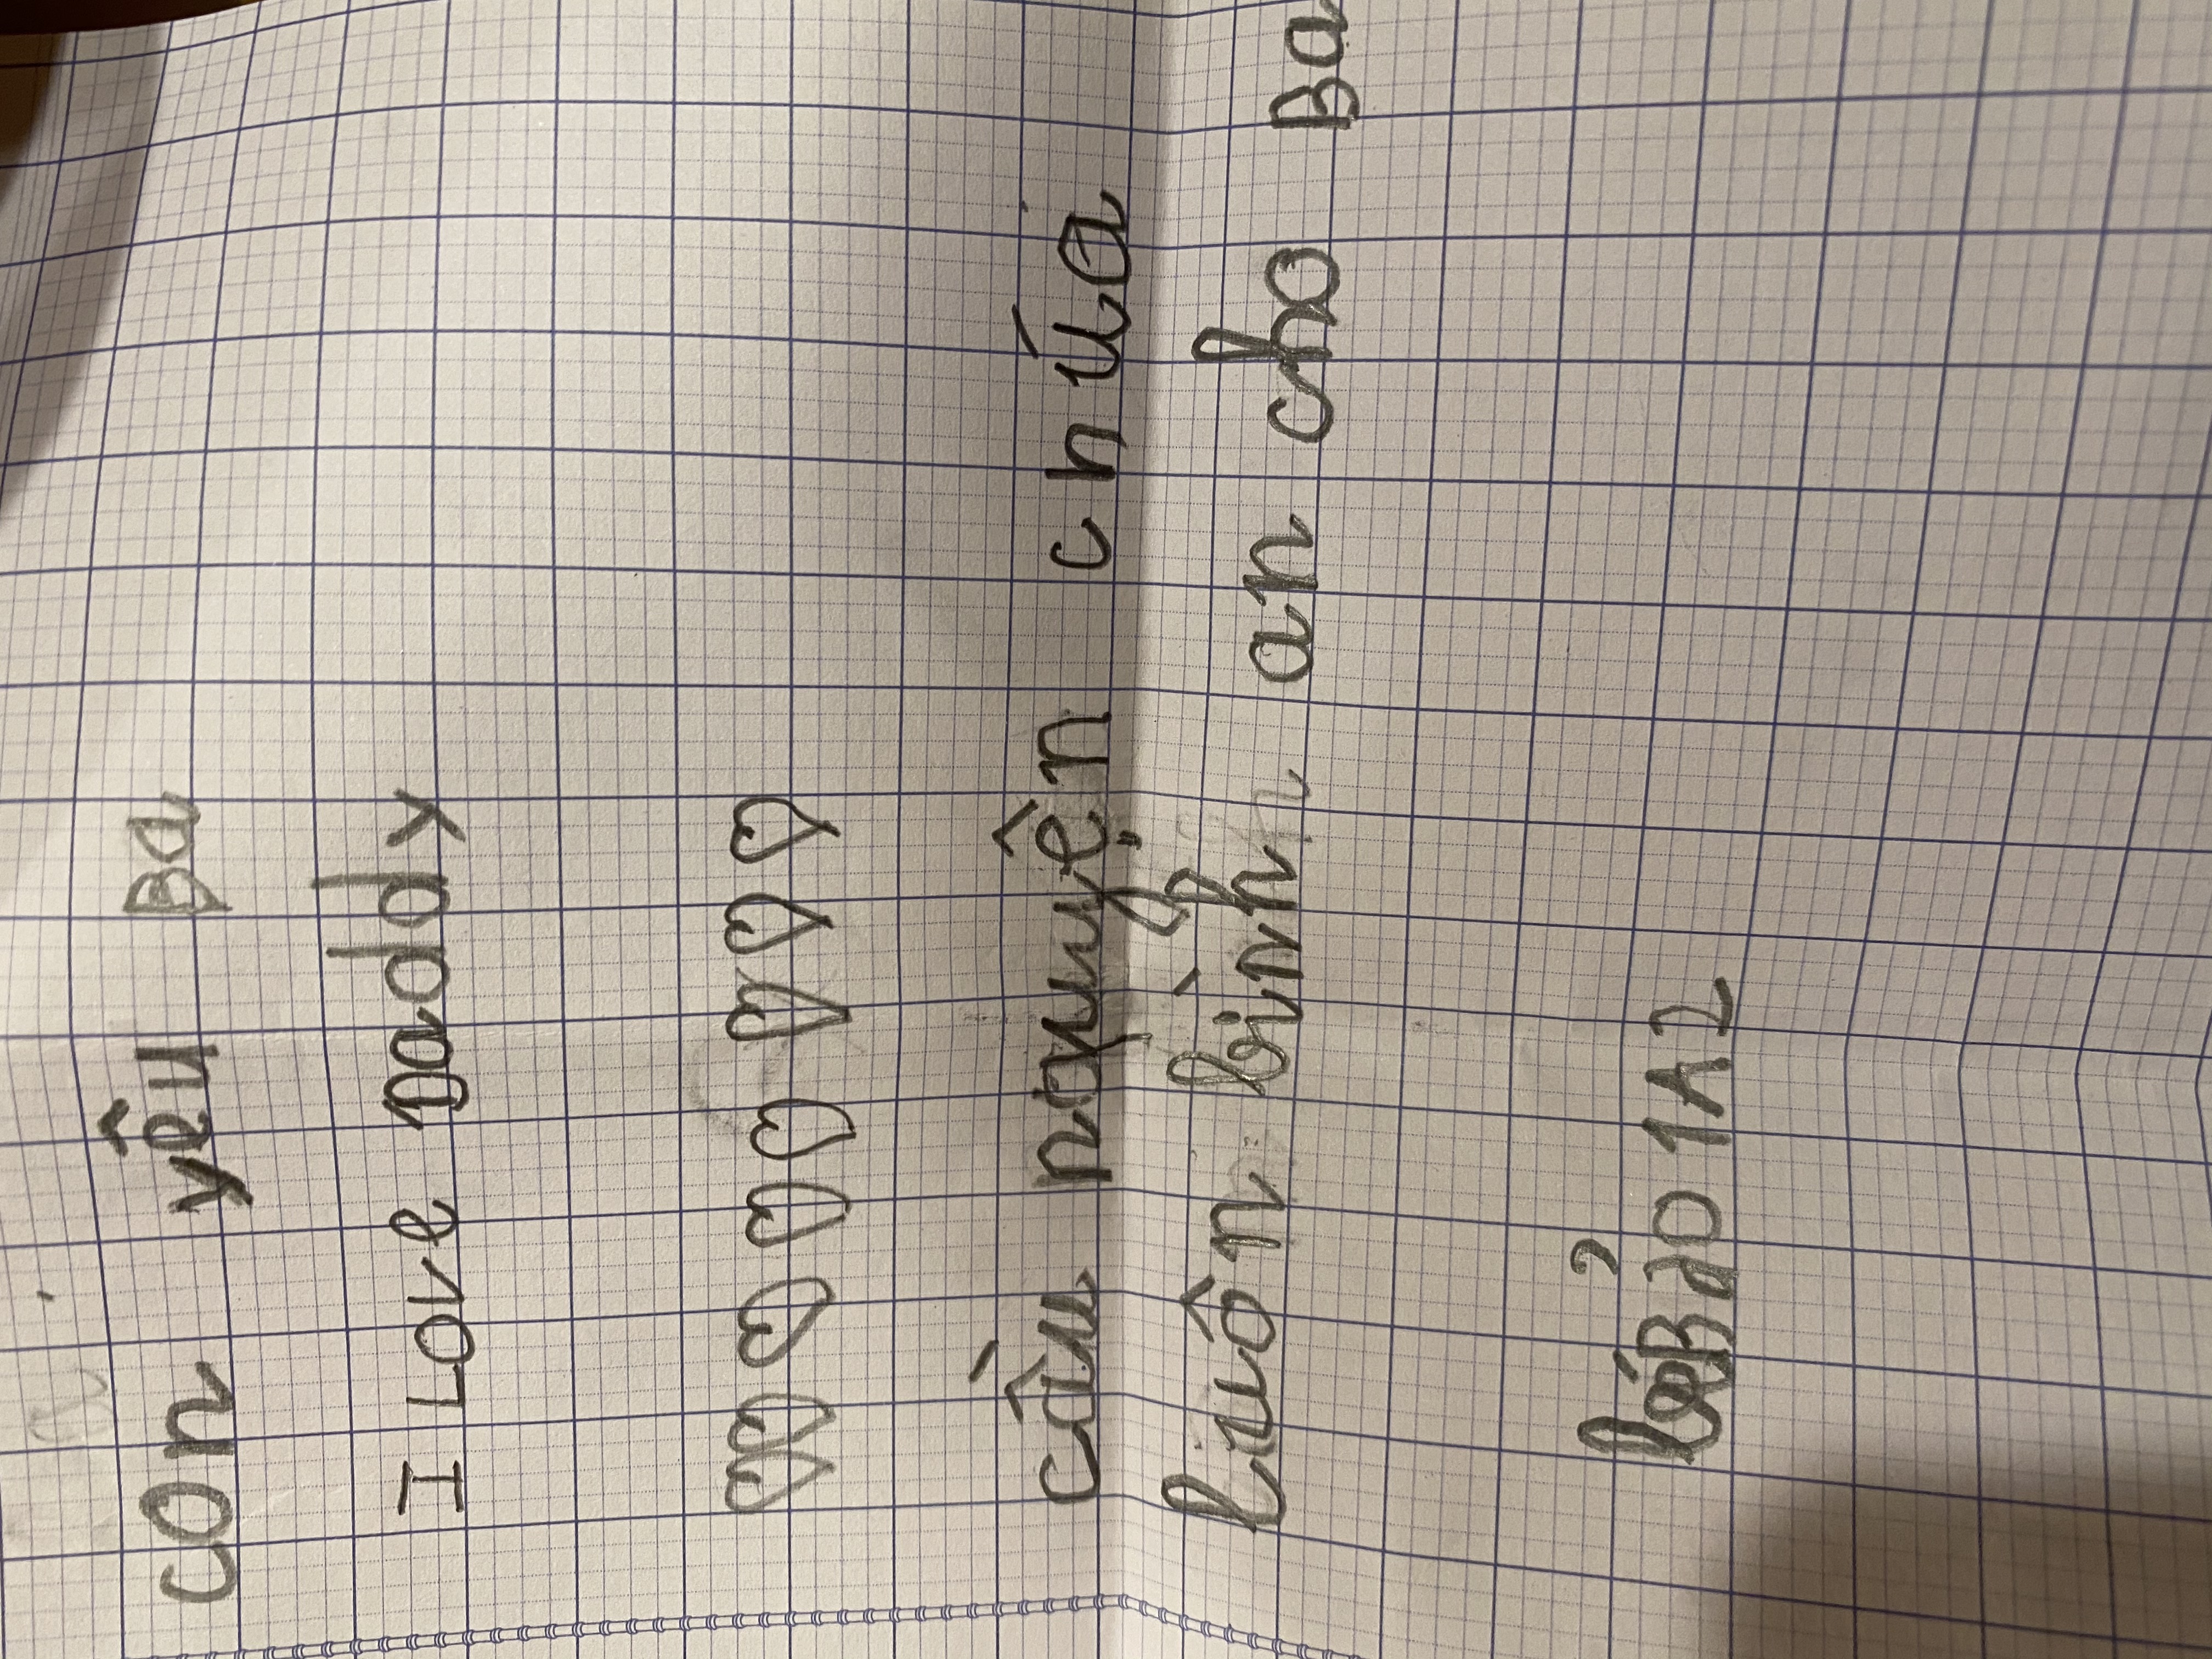 con yêu Ba
I Love Daddy
cầu nguyện chúa
luôn bình an cho Ba
bé Bảo 1A2